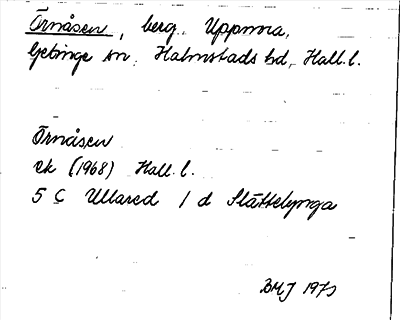 Örnåsen, berg. Uppmora,
Getinge sn, Halmstads hd, Hall. l.
Örnåsen
ek (1968) Hall. l.
5 C Ullared 1 d Slättelynga
BMJ 1970